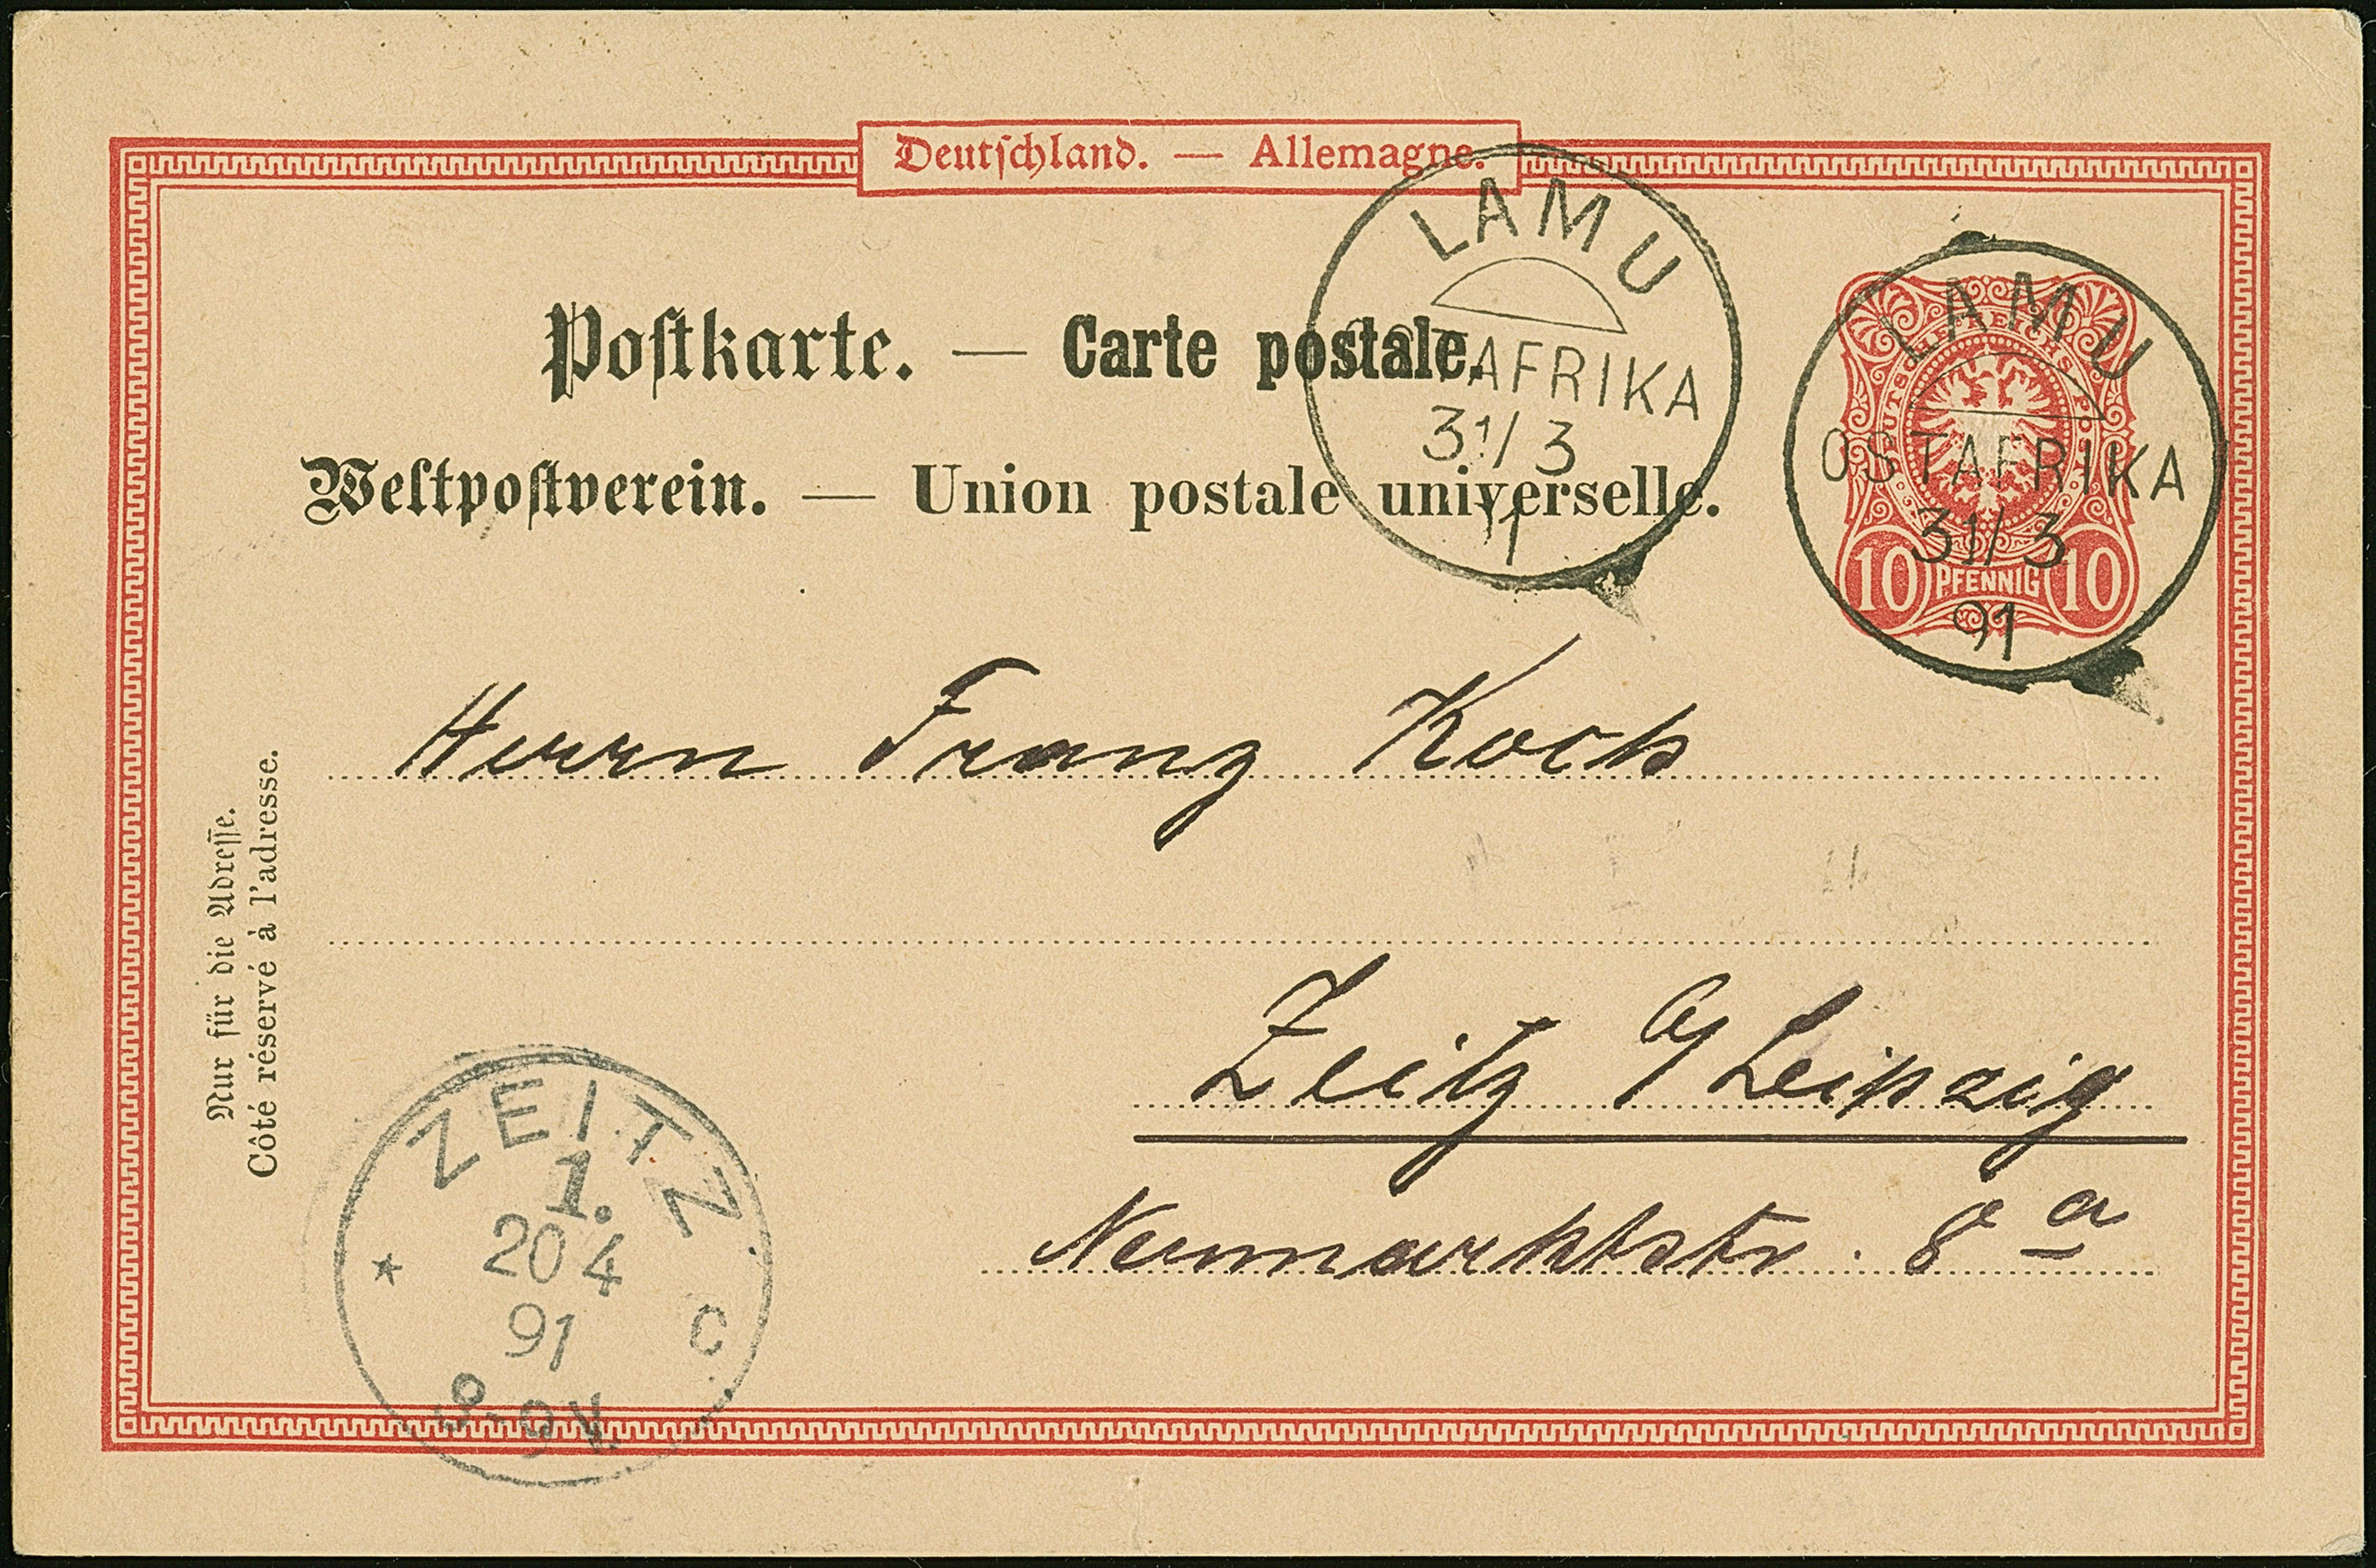 Deutschland. — Allemagne.
LAMU
TAFRIKA
31/3
LAMU
OSTAFRIKA
31/3
91
DEUTSCHE REICHS POST
10 PFENNIG 10
Postkarte. — Carte postale.
Weltpostverein. — Union postale universelle.
Herrn Franz Koch
Zeitz a/Leipzig
Neumarktstr. 8 a
Nur für die Adresse.
Côté réservé à l'adresse.
ZEITZ
1.
20 4
91
8-9V.
* C